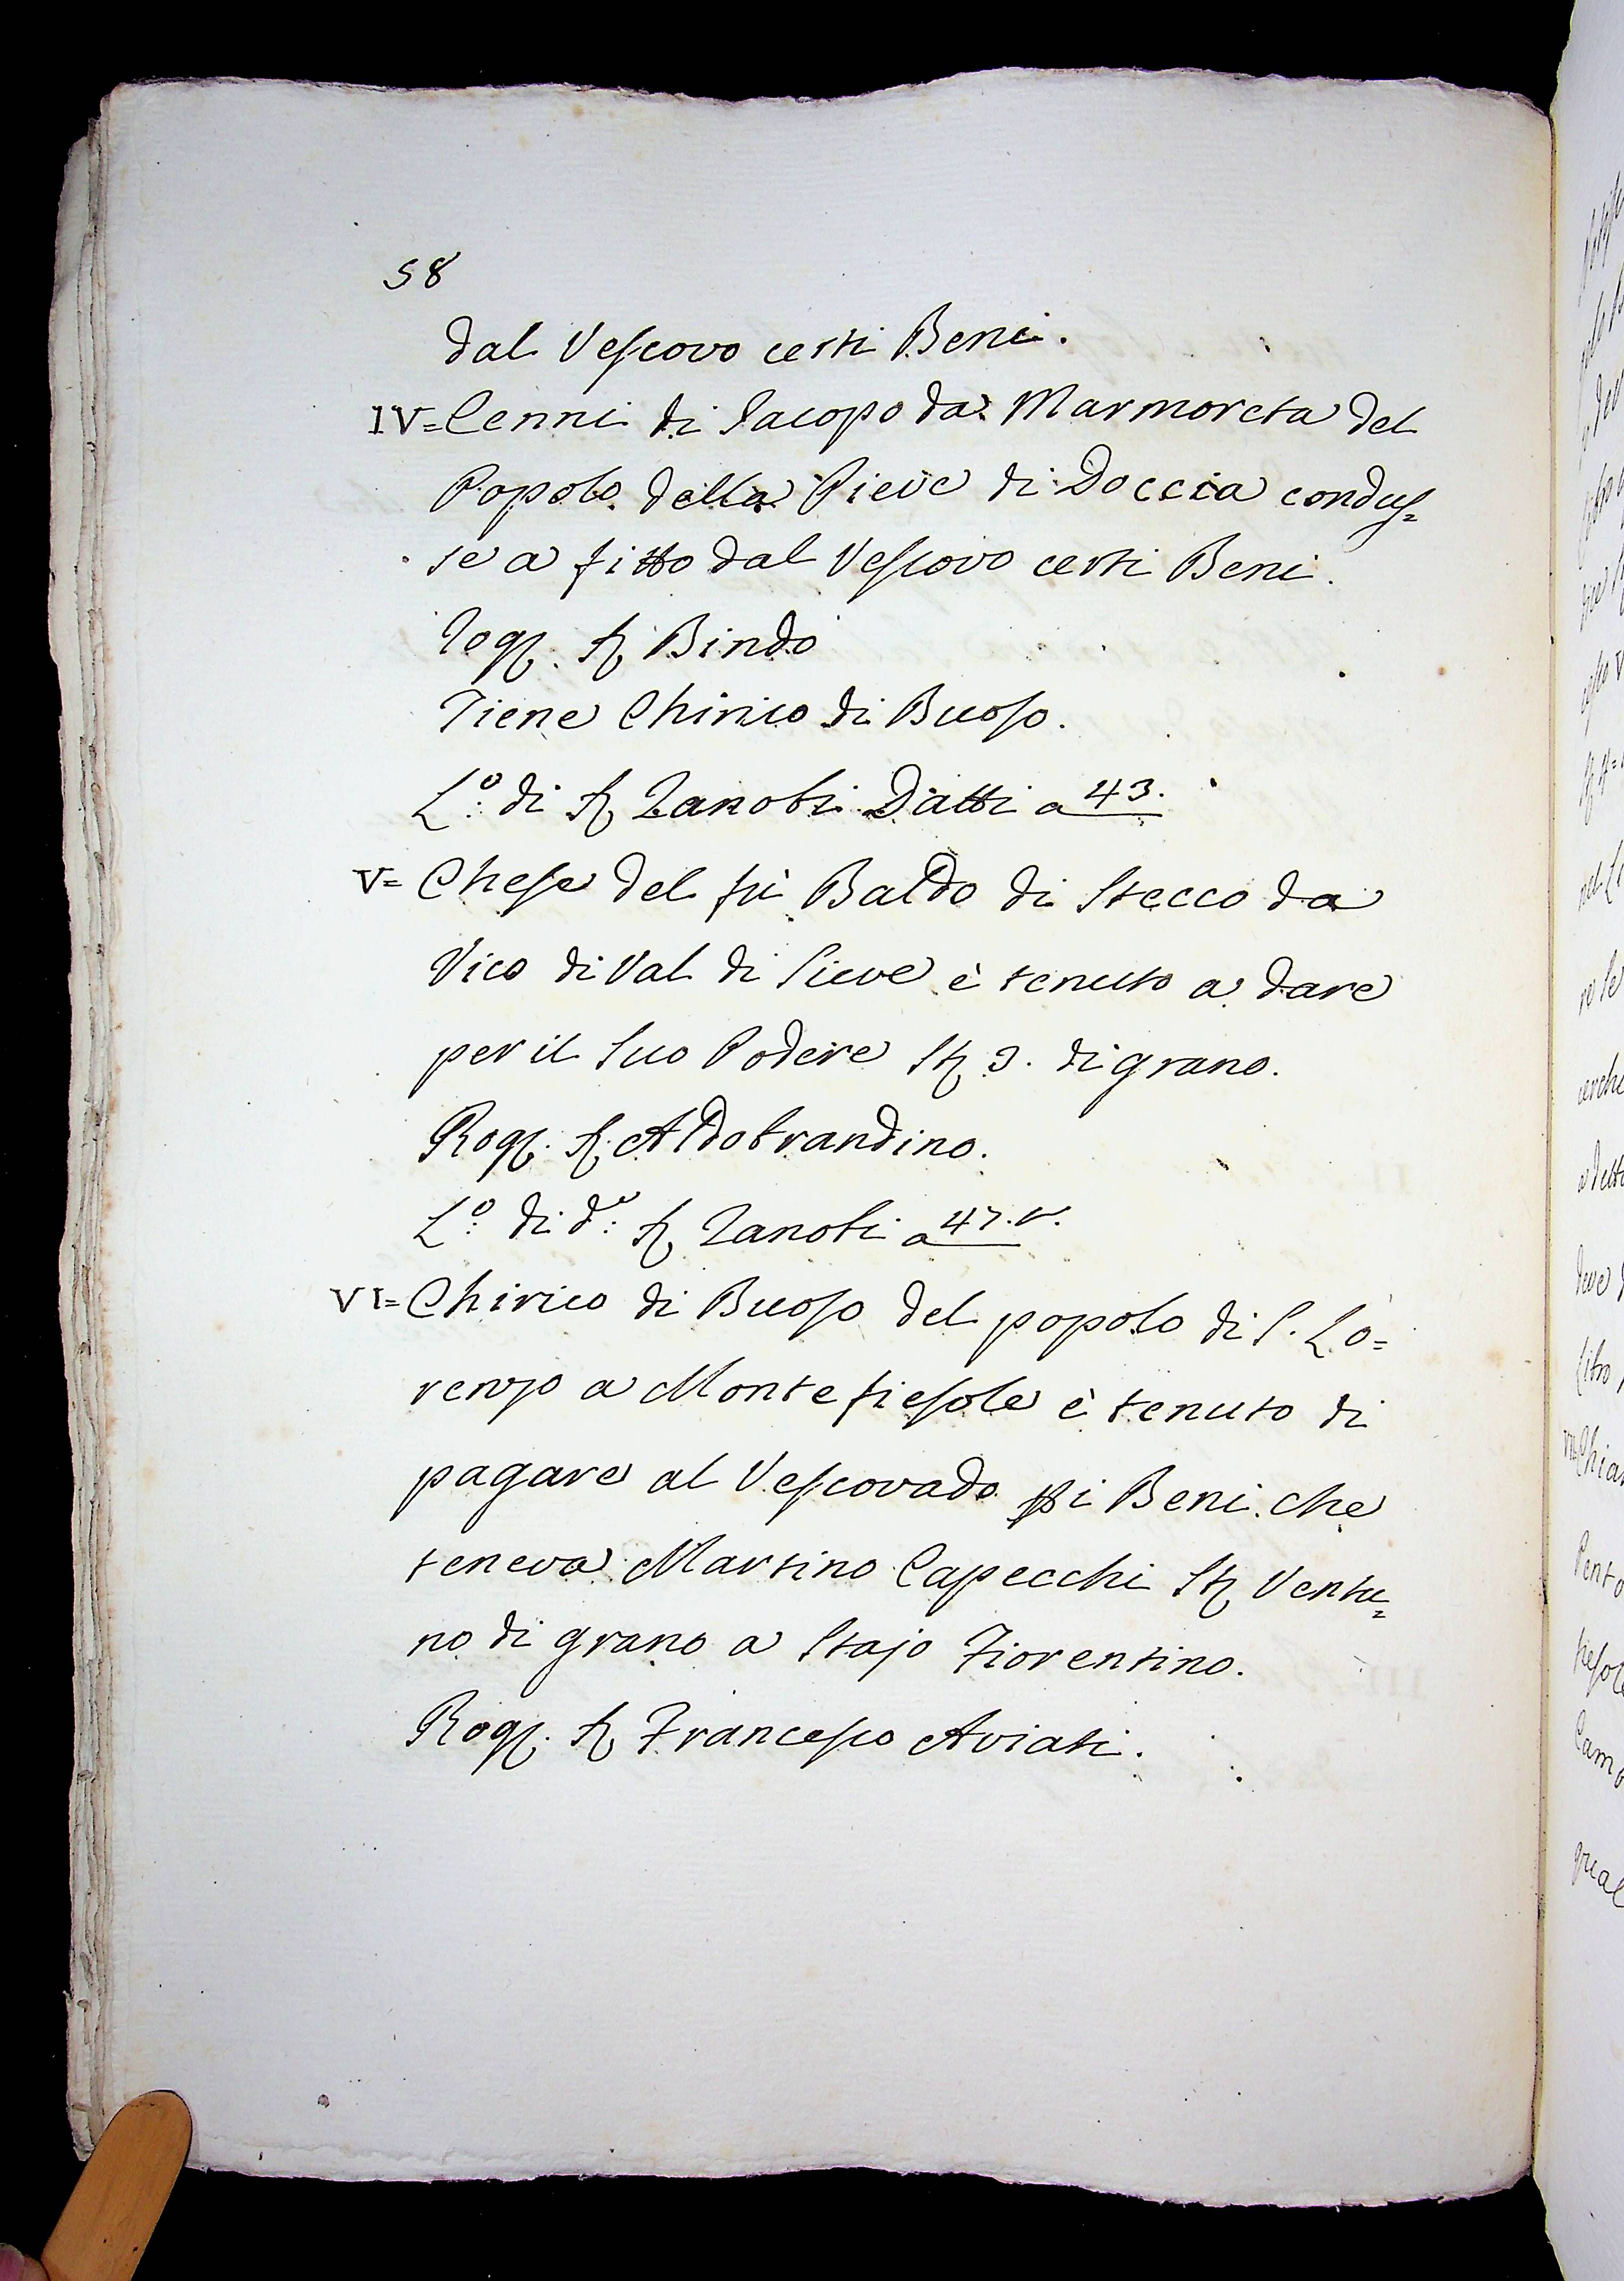 58
dal Vescovo certi Beni.
IV= Cenni di Jacopo da Marmoreta del
Popolo della Pieve di Doccia condus=
se a fitto dal Vescovo certi Beni.
Rog. S. Bindo
Tiene Chirico di Buoso.
L.º di S. Zanobi Datti a 43.
V= Chese del fù Baldo di Stecco da
Vico di Val di Sieve è tenuto a dare
per il Suo Podere St. 3. di grano.
Rog. S. Aldobrandino.
L.º di d.º S. Zanobi a 47.v.
VI= Chirico di Buoso del popolo di S. Lo=
renzo a Monte fiesole è tenuto di
pagare al Vescovado pi Beni che
teneva Martino Capecchi St. Ventu=
no di grano a Stajo Fiorentino.
Rog. S. Francesco Aviati.